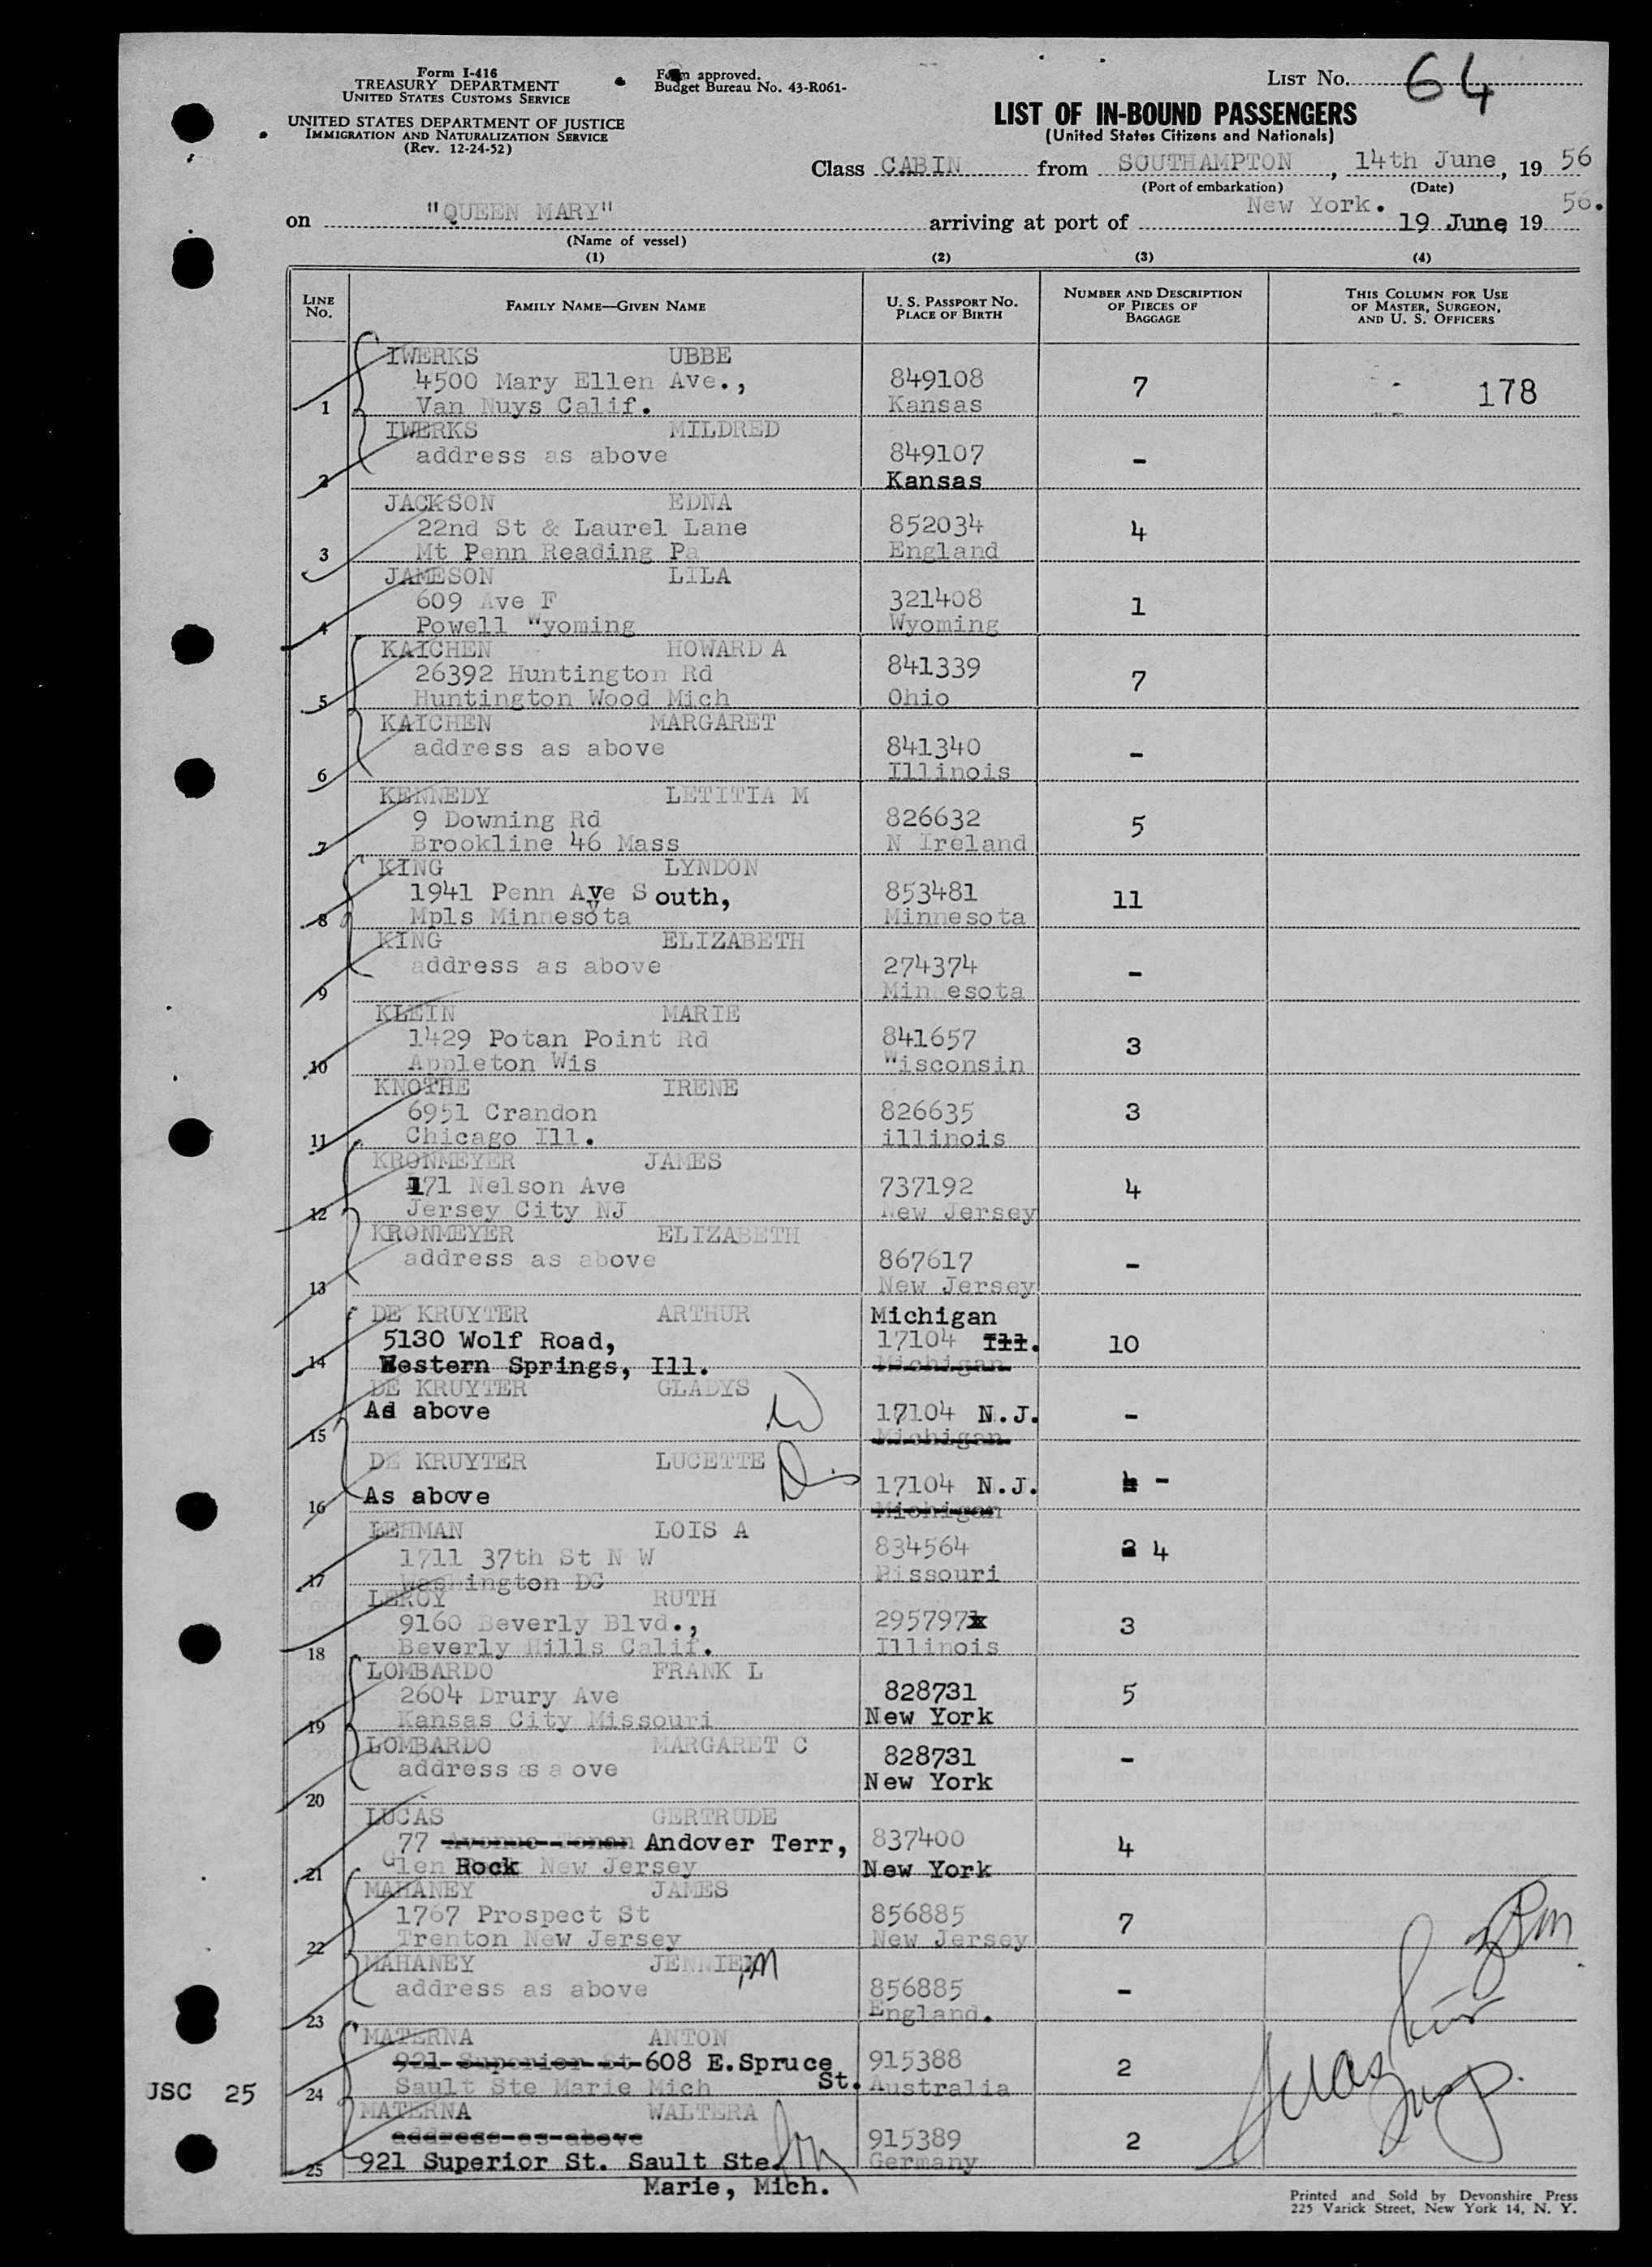 Form I-416
TREASURY DEPARTMENT
UNITED STATES CUSTOMS SERVICE
UNITED STATES DEPARTMENT OF JUSTICE
IMMIGRATION AND NATURALIZATION SERVICE
(Rev. 12-24-52)
Form approved.
Budget Bureau No. 43-R061-
LIST No. 64
LIST OF IN-BOUND PASSENGERS
(United States Citizens and Nationals)
Class CABIN from SOUTHAMPTON, 14th June, 19 56
(Port of embarkation) (Date)
on "QUEEN MARY" arriving at port of New York. 19 June, 19 56.
(Name of vessel)
(1) (2) (3) (4)
LINE No. FAMILY NAME—GIVEN NAME U. S. PASSPORT No. PLACE OF BIRTH NUMBER AND DESCRIPTION OF PIECES OF BAGGAGE THIS COLUMN FOR USE OF MASTER, SURGEON, AND U. S. OFFICERS
IWERKS UBBE
4500 Mary Ellen Ave., 849108 7 178
1 Van Nuys Calif. Kansas
IWERKS MILDRED
address as above 849107 -
2 Kansas
JACKSON EDNA
22nd St & Laurel Lane 852034 4
3 Mt Penn Reading Pa England
JAMESON LILA
609 Ave F 321408 1
4 Powell Wyoming Wyoming
KAICHEN HOWARD A
26392 Huntington Rd 841339 7
5 Huntington Wood Mich Ohio
KAICHEN MARGARET
address as above 841340 -
6 Illinois
KENNEDY LETITIA M
9 Downing Rd 826632 5
7 Brookline 46 Mass N Ireland
KING LYNDON
1941 Penn Ave South, 853481 11
8 Mpls Minnesota Minnesota
KING ELIZABETH
address as above 274374 -
9 Minnesota
KLEIN MARIE
1429 Potan Point Rd 841657 3
10 Appleton Wis Wisconsin
KNOTHE IRENE
6951 Crandon 826635 3
11 Chicago Ill. illinois
KRONMEYER JAMES
171 Nelson Ave 737192 4
12 Jersey City NJ New Jersey
KRONMEYER ELIZABETH
address as above 867617 -
13 New Jersey
DE KRUYTER ARTHUR Michigan
5130 Wolf Road, 17104 Ill. 10
14 Western Springs, Ill. Michigan
DE KRUYTER GLADYS
Ad above 17104 N.J. -
15 Michigan
DE KRUYTER LUCETTE
As above 17104 N.J. -
16 Michigan
LEHMAN LOIS A
1711 37th St N W 834564 4
17 Washington DC Missouri
LEROY RUTH
9160 Beverly Blvd., 295797 3
18 Beverly Hills Calif. Illinois
LOMBARDO FRANK L
2604 Drury Ave 828731 5
19 Kansas City Missouri New York
LOMBARDO MARGARET C
address as a ove 828731 -
20 New York
LUCAS GERTRUDE
77 Andover Terr, 837400 4
21 Glen Rock New Jersey New York
MAHANEY JAMES
1767 Prospect St 856885 7
22 Trenton New Jersey New Jersey
MAHANEY JENNIE M
address as above 856885 -
23 England.
MATERNA ANTON
921 Superior St 608 E.Spruce St. 915388 2
24 Sault Ste Marie Mich Australia
JSC 25
MATERNA WALTERA
address as above 915389 2
25 921 Superior St. Sault Ste. Germany
Marie, Mich.
Printed and Sold by Devonshire Press
225 Varick Street, New York 14, N. Y.